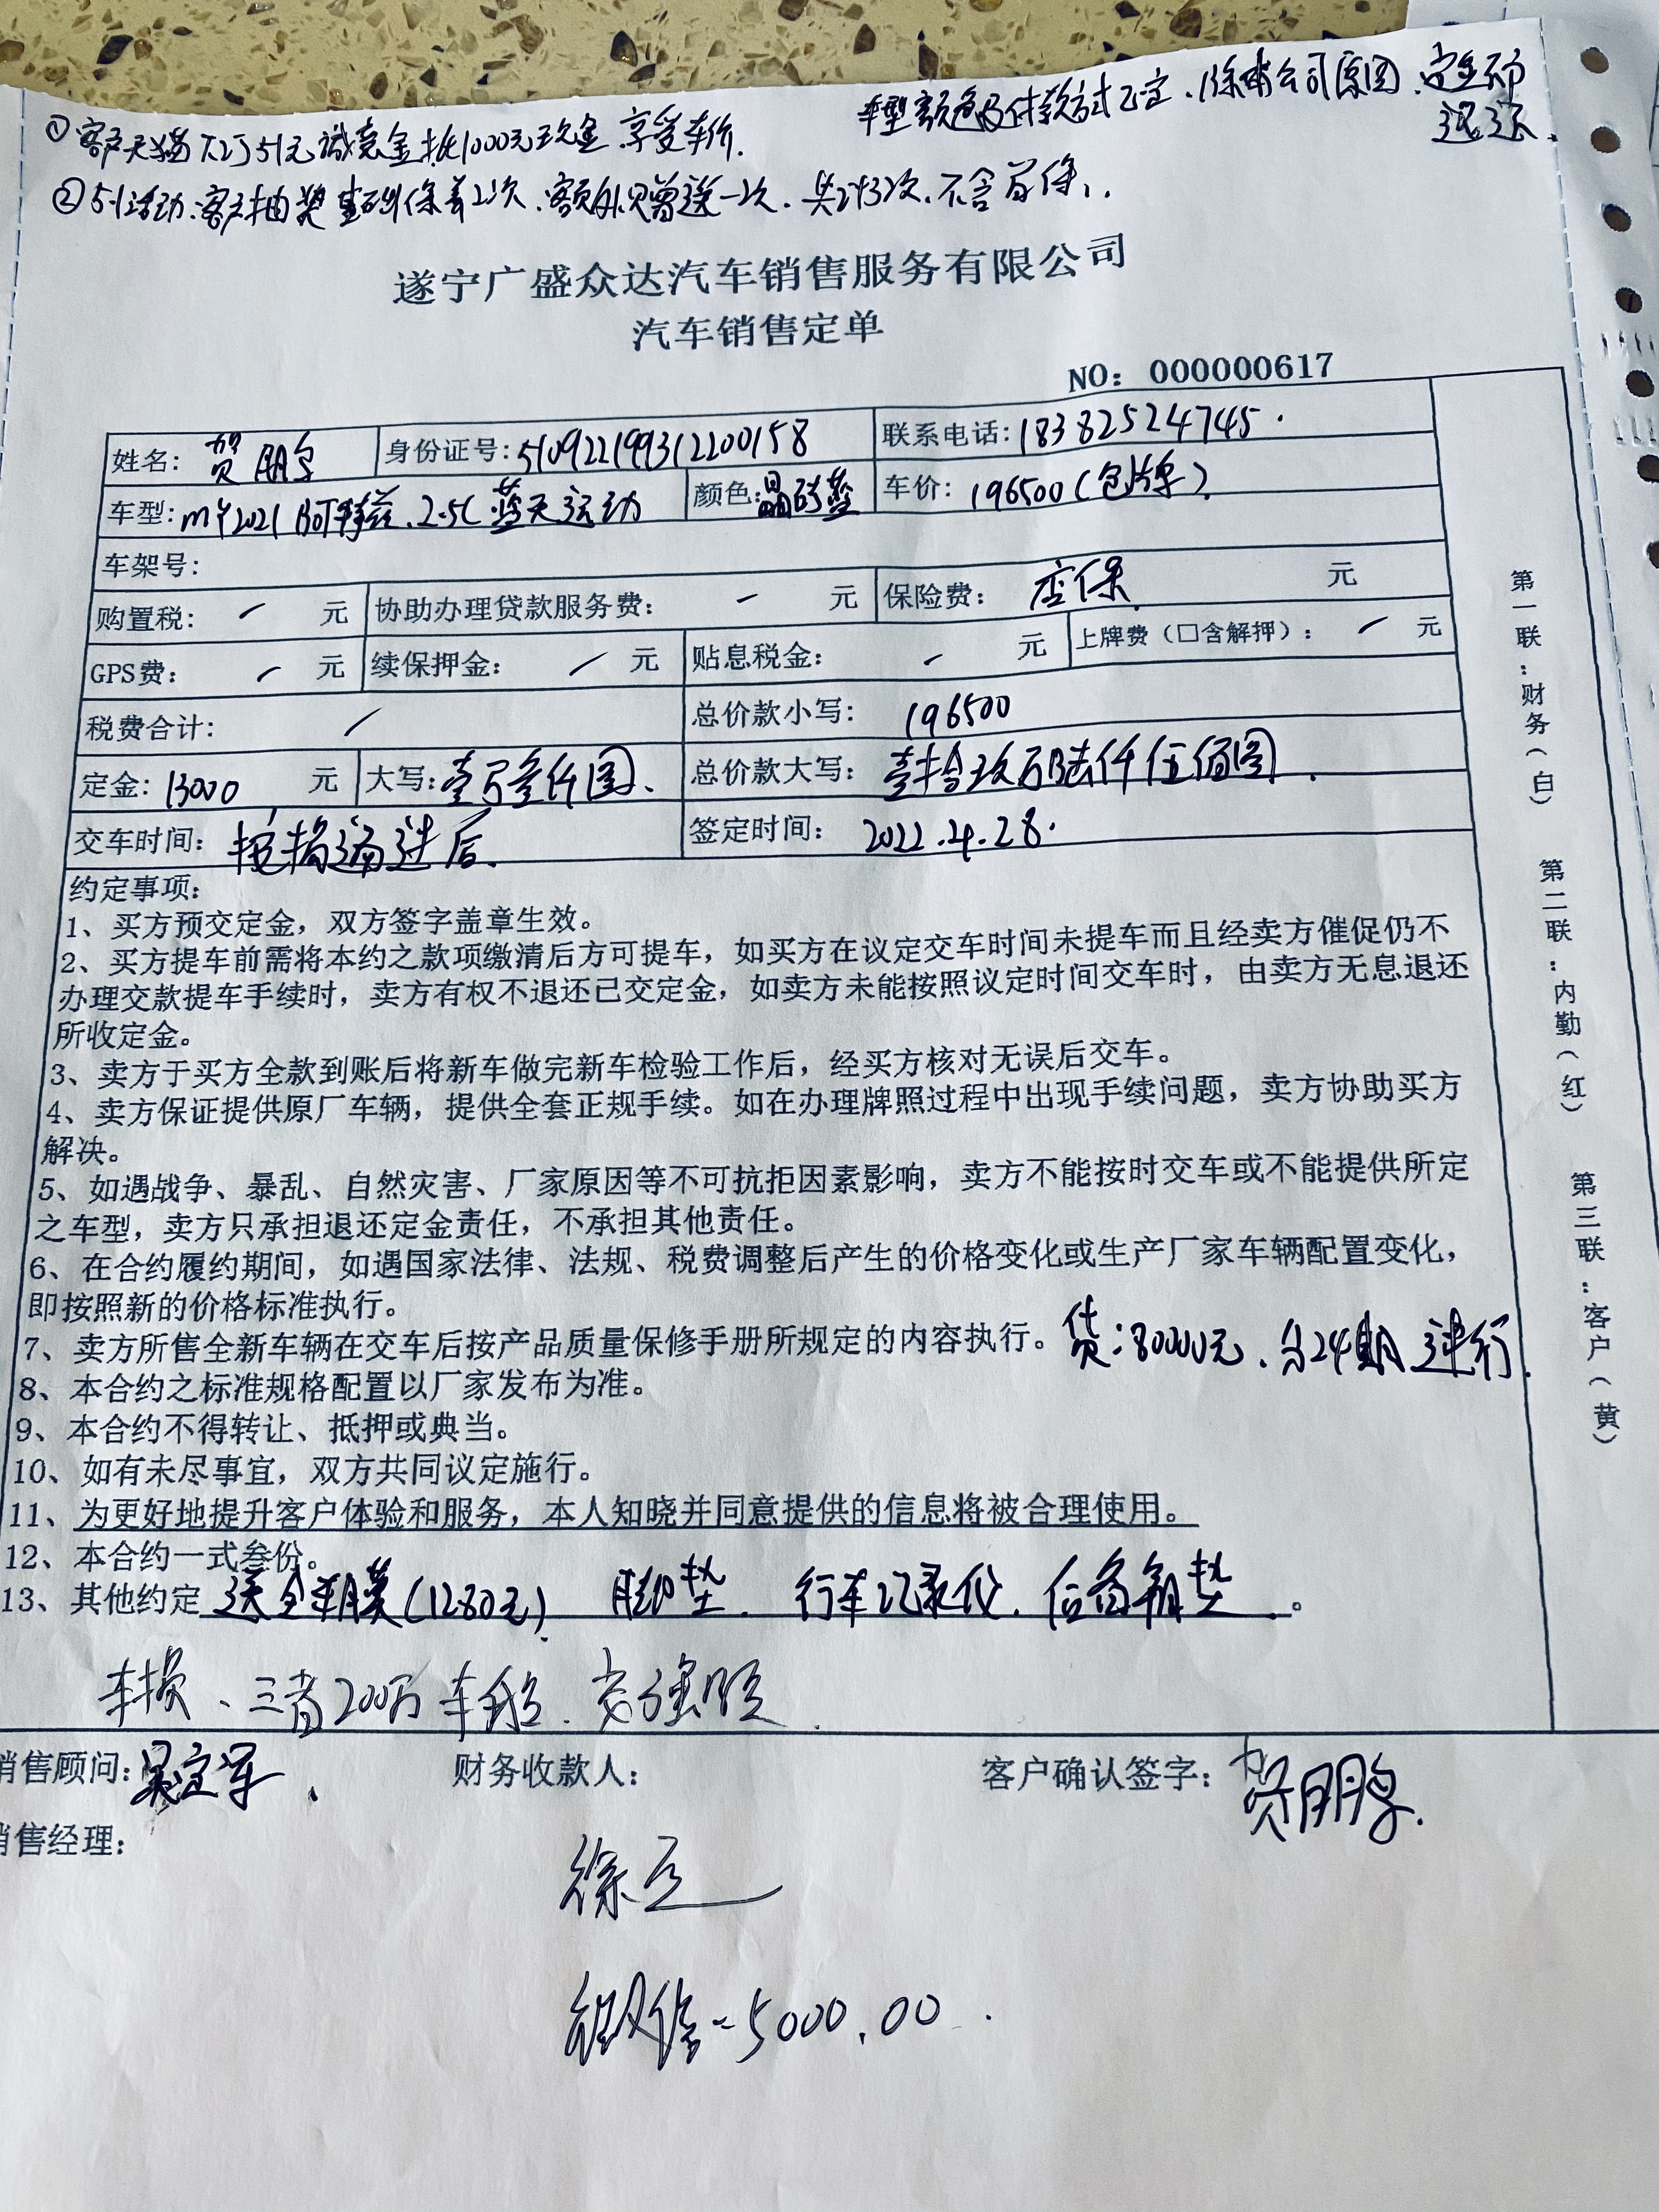 ①客户天猫下订51元诚意金抵1000元现金.享受车价.
车型颜色及付款方式已定.除非公司原因.定金不予
退还.
②5.1活动.客户抽奖基础保养2次.额外赠送一次.共计3次.不含首保.
遂宁广盛众达汽车销售服务有限公司
汽车销售定单
NO: 000000617
姓名: 贺朋 身份证号:510922199312200158 联系电话:18382524745.
车型:MY2021阿特兹.2.5L蓝天运动 颜色: 车价: 196500(包牌)
车架号:
购置税: / 元 协助办理贷款服务费: / 元 保险费: 店保 元
GPS费: / 元 续保押金: / 元 贴息税金: / 元 上牌费(□含解押): / 元
税费合计: / 总价款小写: 196500
定金: 13000 元 大写:壹万叁仟圆. 总价款大写: 壹拾玖万陆仟伍佰圆.
交车时间: 按揭通过后. 签定时间: 2022.4.28.
约定事项:
1、买方预交定金，双方签字盖章生效。
2、买方提车前需将本约之款项缴清后方可提车，如买方在议定交车时间未提车而且经卖方催促仍不
办理交款提车手续时，卖方有权不退还已交定金，如卖方未能按照议定时间交车时，由卖方无息退还
所收定金。
3、卖方于买方全款到账后将新车做完新车检验工作后，经买方核对无误后交车。
4、卖方保证提供原厂车辆，提供全套正规手续。如在办理牌照过程中出现手续问题，卖方协助买方
解决。
5、如遇战争、暴乱、自然灾害、厂家原因等不可抗拒因素影响，卖方不能按时交车或不能提供所定
之车型，卖方只承担退还定金责任，不承担其他责任。
6、在合约履约期间，如遇国家法律、法规、税费调整后产生的价格变化或生产厂家车辆配置变化，
即按照新的价格标准执行。
7、卖方所售全新车辆在交车后按产品质量保修手册所规定的内容执行。 贷:80000元.分24期进行.
8、本合约之标准规格配置以厂家发布为准。
9、本合约不得转让、抵押或典当。
10、如有未尽事宜，双方共同议定施行。
11、为更好地提升客户体验和服务，本人知晓并同意提供的信息将被合理使用。
12、本合约一式叁份。
13、其他约定 送全车膜(1280元) 脚垫. 行车记录仪. 后备箱垫.。
车损、三者200万 车船.交强险.
第一联:财务(白)
第二联:内勤(红)
第三联:客户(黄)
销售顾问: 财务收款人: 客户确认签字:贺朋
销售经理:
-5000.00.